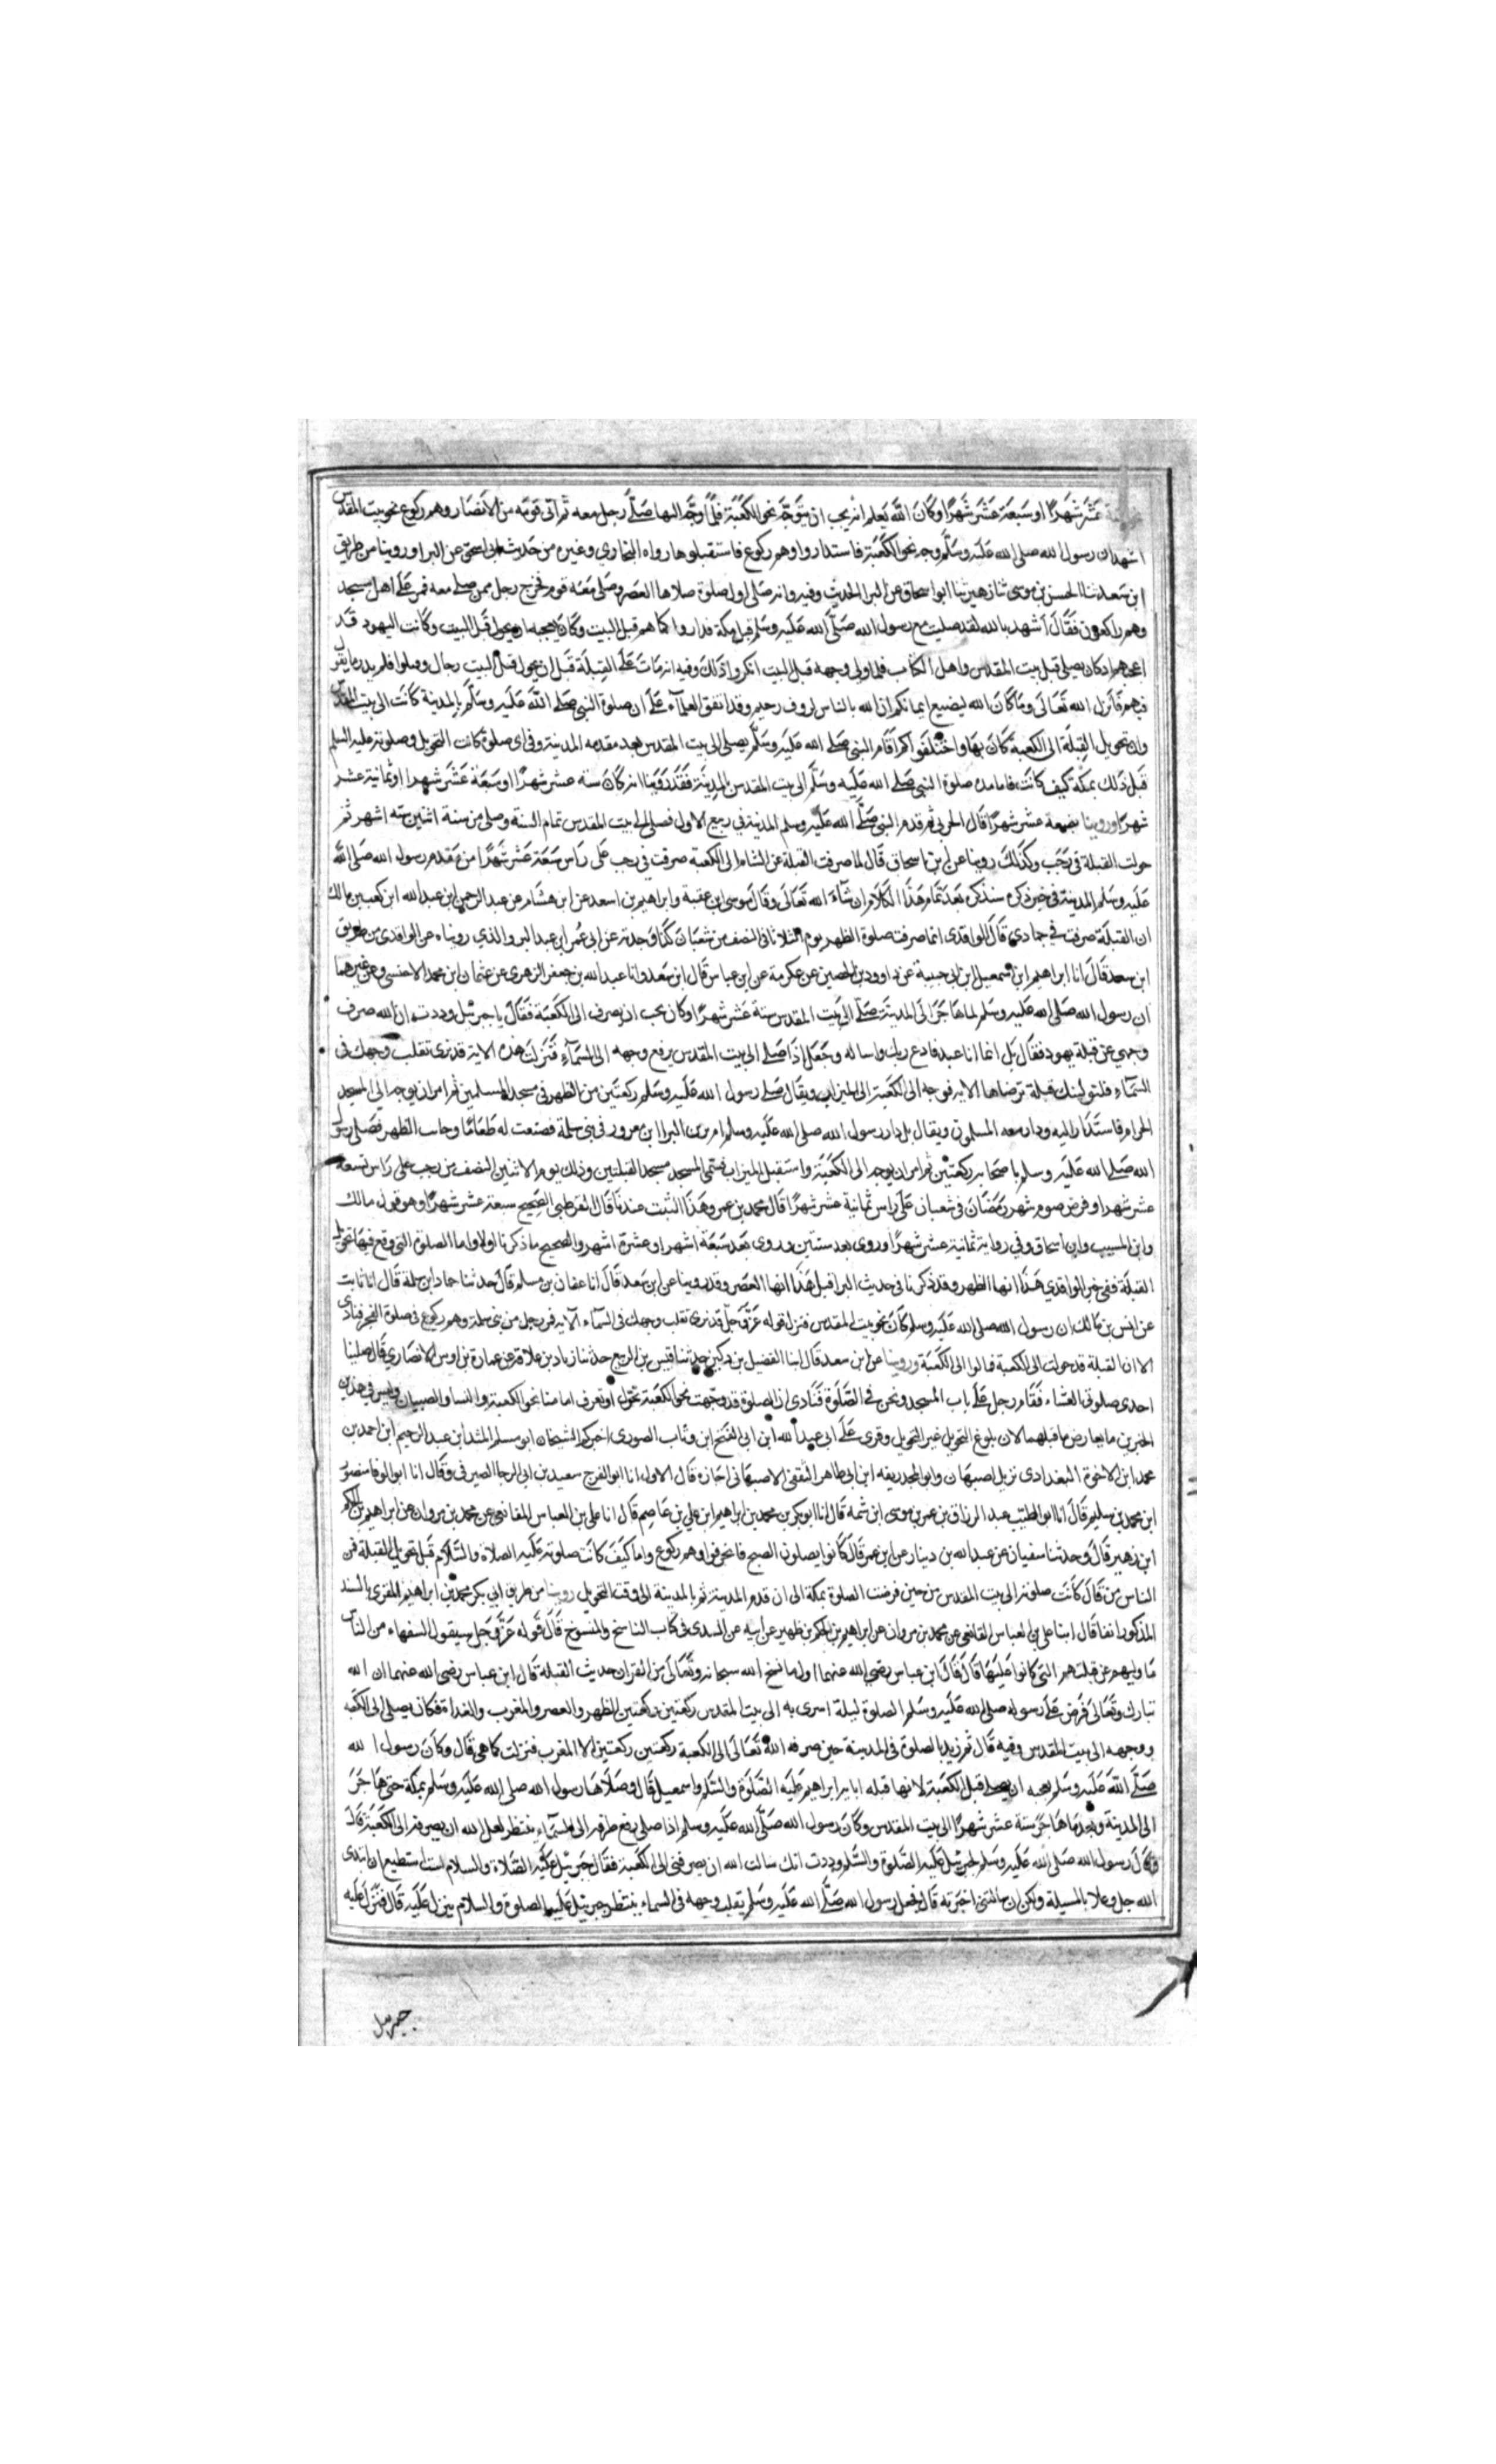 عشر شهرًا او سبعة عشر شهرًا وكان الله يعلم انه يحب ان يتوجه نحو الكعبة فلما وجه اليها صلى رجل معه ثم اتى قومه من الانصار وهم ركوع نحو بيت المقدس
اشهد ان رسول الله صلى الله عليه وسلم وجه نحو الكعبة فاستداروا وهم ركوع فاستقبلوها رواه البخاري وغيره من حديث ابى اسحق عن البرا وروينا من طريق
ابن سعد ثنا الحسن بن موسى ثنا زهير ثنا ابو اسحاق عن البرا الحديث وفيه وانه صلى اول صلوة صلاها العصر وصلى معه قوم فخرج رجل ممن صلى معه فمر على اهل مسجد
وهم راكعون فقال اشهد بالله لقد صليت مع رسول الله صلى الله عليه وسلم قبل مكة فداروا كما هم قبل البيت وكان يعجبه ان يحول قبل البيت وكانت اليهود قد
اعجبهم اذ كان يصلى قبل بيت المقدس واهل الكتاب فلما ولى وجهه قبل البيت انكروا ذلك وفيه انه مات على القبلة قبل ان يحول قبل البيت رجال وقتلوا فلم يدر ما يقول
فيهم فانزل الله تعالى وما كان الله ليضيع ايمانكم ان الله بالناس لروف رحيم وقد اتفق العلمآء على ان صلوة النبي صلى الله عليه وسلم بالمدينة كانت الى بيت المقدس
وان تحويل القبلة الى الكعبة كان بها واختلفوا كم اقام النبي صلى الله عليه وسلم يصلى الى بيت المقدس بعد مقدمه المدينة وفى اى صلوة كانت التحويل وصلوته عليه السلم
قبل ذلك بمكة كيف كانت فاما مدة صلوة النبي صلى الله عليه وسلم الى بيت المقدس بالمدينة فقد روينا انه كان ستة عشر شهرًا او سبعة عشر شهرا او ثمانية عشر
شهرًا وروينا بضعة عشر شهرًا قال الحربى ثم قدم النبي صلى الله عليه وسلم المدينة في ربيع الاول فصلى الى بيت المقدس تمام السنة وصلى من سنة اثنين ستة اشهر ثم
حولت القبلة في رجب وكذلك روينا عن ابن اسحاق قال لما صرفت القبلة عن الشام الى الكعبة صرفت في رجب على راس سبعة عشر شهرًا من مقدم رسول الله صلى الله
عليه وسلم المدينة في خبر ذكره سنذكره بعد تمام هذا الكلام ان شآء الله تعالى وقال موسى ابن عقبة وابراهيم بن اسعد عن ابن هشام عن عبد الرحمن ابن عبد الله ابن كعب بن مالك
ان القبلة صرفت في جمادي قال الواقدى انما صرفت صلوة الظهر يوم الثلاثا فى النصف من شعبان كذا وجدته عن ابى عمر ابن عبد البر والذي رويناه عن الواقدى من طريق
ابن سعد قال انا ابراهيم ابن اسمعيل ابن ابى حبيبة عن داوود بن الحصين عن عكرمة عن ابن عباس قال ابن سعد وانا عبد الله بن جعفر الزهرى عن عثمان ابن محمد الاخنسى وعن غيرهما
ان رسول الله صلى الله عليه وسلم لما هاجر الى المدينة صلى الى بيت المقدس ستة عشر شهرًا وكان يحب ان يصرف الى الكعبة فقال يا جبرئيل وددت ان الله صرف
وجهي عن قبلة يهود فقال جبرئيل انما انا عبد فادع ربك واساله وجعل اذا صلى الى بيت المقدس يرفع وجهه الى السمآء فنزلت هذه الاية قد نرى تقلب وجهك فى
السمآء فلنولينك قبلة ترضاها الاية فوجه الى الكعبة الى الميزاب ويقال صلى رسول الله عليه وسلم ركعتين من الظهر فى مسجد المسلمين ثم امر ان يوجه الى المسجد
الحرام فاستدار اليه ودار معه المسلمون ويقال بل زار رسول الله صلى الله عليه وسلم ام بشر بن البرا ابن معرور في بنى سلمة فصنعت له طعامًا وحانت الظهر فصلى رسول
الله صلى الله عليه وسلم باصحابه ركعتين ثم امر ان يوجه الى الكعبة واستقبل الميزاب فسمى المسجد مسجد القبلتين وذلك يوم الاثنين النصف من رجب على راس سبعة
عشر شهرا وفرض صوم شهر رمضان فى شعبان على راس ثمانية عشر شهرًا قال محمد بن عمر وهذا الثبت عندنا قال القرطبى الصحيح سبعة عشر شهرًا وهو قول مالك
وابن المسيب وابن اسحاق وفي رواية ثمانية عشر شهرًا وروى بعد سنتين وروى بعد سبعة اشهر او عشرة اشهر والصحيح ما ذكرناه اولا واما الصلوة التي وقع فيها تحويل
القبلة ففى خبر الواقدي هذا انها الظهر وقد ذكرنا فى حديث البرا قبل هذا انها العصر وقد روينا عن ابن سعد قال انا عفان بن مسلم قال حدثنا حماد ابن سلمة قال انا ثابت
عن انس بن مالك ان رسول الله صلى الله عليه وسلم كان نحو بيت المقدس فنزل قوله عز وجل قد نرى تقلب وجهك فى السمآء الآية فمر رجل من بنى سلمة وهم ركوع فى صلوة الفجر فنادى
الا ان القبلة قد حولت الى الكعبة فمالوا الى الكعبة وروينا عن ابن سعد قال ابنا الفضيل بن دكين حدثنا قيس بن الربيع حدثنا زياد بن علاقة عن عمارة بن اوس الانصاري قال صلينا
احدى صلوتى العشاء فقام رجل على باب المسجد ونحن فى الصلوة فنادى ان الصلوة قد وجهت نحو الكعبة تحول او تحرف امامنا نحو الكعبة والنسا والصبيان وليس فى هذين
الخبرين ما يعارض ما قبلهما لان بلوغ التحويل غير التحويل وقرى على ابى عبد الله ابن ابى الفتح ابن وثاب الصورى اخبركم الشيخان ابو مسلم المشيد ابن عبد الرحيم ابن احمد بن
محمد ابن الاخوة البغدادى نزيل اصبهان وابو المجد ريفه ابن ابى طاهر الثقفى الاصبهانى اجازة قال الاول انا ابو الفرج سعيد بن ابى الرجا الصيرفى وقال انا ابو الوفا منصور
ابن محمد بن سليم قال انا ابو الطيب عبد الرزاق بن عمر بن موسى ابن شمه قال انا ابو بكر بن محمد بن ابراهيم ابن علي بن عاصم قال انا على بن العباس المقانعى عن محمد بن مروان عن ابراهيم بن الحكم
ابن ظهير قال وحدثنا سفيان عن عبد الله بن دينار عن ابن عمر قال كانوا يصلون الصبح فانحرفوا وهم ركوع واما كيف كانت صلوته عليه الصلاة والسلام قبل تحويل القبلة فمن
الناس من قال كانت صلوته الى بيت المقدس من حين فرضت الصلوة بمكة الى ان قدم المدينة ثم بالمدينة الى وقت التحويل روينا من طريق ابي بكر محمد بن ابراهيم المقرى بالسند
المذكور انفا قال ابنا على بن العباس المقانعى عن محمد بن مروان عن ابراهيم بن الحكم بن ظهير عن ابيه عن السدى فى كتاب الناسخ والمنسوخ قال قوله عز وجل سيقول السفهاء من الناس
ما وليهم عن قبلتهم التى كانوا عليها قال قال ابن عباس رضي الله عنهما اول ما نسخ الله سبحانه وتعالى من القران حديث القبلة قال ابن عباس رضى الله عنهما ان الله
تبارك وتعالى فرض على رسوله صلى الله عليه وسلم الصلوة ليلة اسرى به الى بيت المقدس ركعتين ركعتين الظهر والعصر والمغرب والغداة فكان يصلى الى الكعبة
ووجهه الى بيت المقدس وفيه قال ثم زيد بالصلوة فى المدينة حين صرفه الله تعالى الى الكعبة ركعتين ركعتين الا المغرب فنزلت كما هى قال وكان رسول الله
صلى الله عليه وسلم يعجبه ان يصلى قبل الكعبة لانها قبله ابايه ابراهيم عليه الصلوة والسلم واسمعيل قال وصلاها رسول الله صلى الله عليه وسلم بمكة حتى هاجر
الى المدينة وبعد ما هاجر ستة عشر شهرًا الى بيت المقدس وكان رسول الله صلى الله عليه وسلم اذا صلى رفع طرفه الى السمآء ينتظر لعل الله ان يصرفه الى الكعبة قال
وقال رسول الله صلى الله عليه وسلم لجبرئيل عليه الصلوة والسلم وددت انك سالت الله ان يصرفنى الى الكعبة فقال جبرئيل عليه الصلاة والسلام لست استطيع ان ابتدى
الله جل وعلا بالمسيلة ولكن ان سالتنى اخبرته قال فجعل رسول الله صلى الله عليه وسلم يقلب وجهه فى السماء ينتظر جبرئيل عليه الصلوة والسلام ينزل عليه قال فنزل عليه
جبرئيل